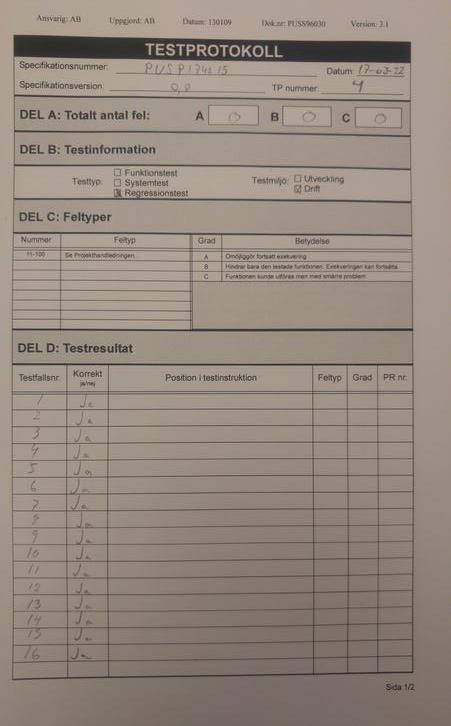 Ansvarig: AB Uppgjord: AB Datum: 130109 Dok.nr: PUSS96030 Version: 3.1
TESTPROTOKOLL
Specifikationsnummer: PUSP174215 Datum: 17-03-22
Specifikationsversion: 0,8 TP nummer: 4
DEL A: Totalt antal fel: A 0 B 0 C 0
DEL B: Testinformation
Testtyp: Funktionstest Testmiljö: Utveckling
Systemtest Drift
Regressionstest
DEL C: Feltyper
Nummer Feltyp Grad Betydelse
11-100 Se Projekthandledningen... A Omöjliggör fortsatt exekvering
B Hindrar bara den testade funktionen. Exekveringen kan fortsätta.
C Funktionen kunde utföras men med smärre problem
DEL D: Testresultat
Testfallsnr. Korrekt ja/nej Position i testinstruktion Feltyp Grad PR nr.
1 Ja
2 Ja
3 Ja
4 Ja
5 Ja
6 Ja
7 Ja
8 Ja
9 Ja
10 Ja
11 Ja
12 Ja
13 Ja
14 Ja
15 Ja
16 Ja
Sida 1/2